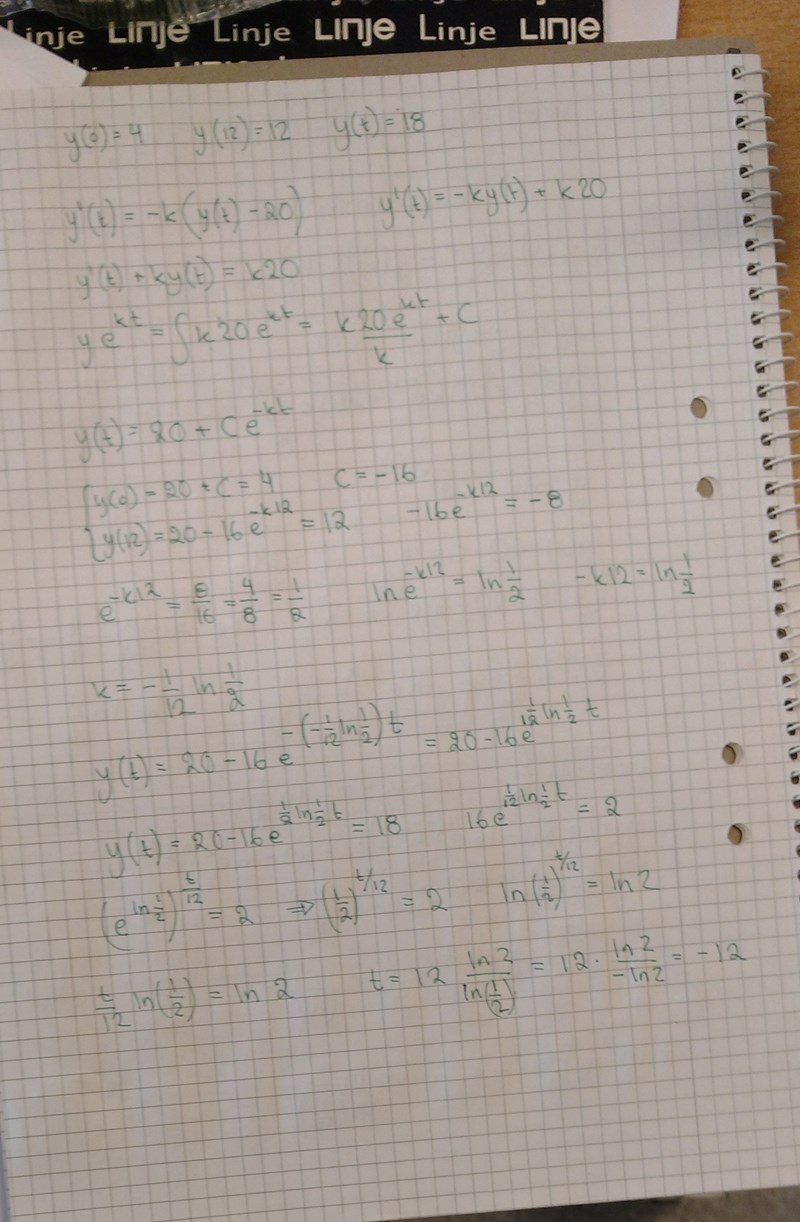 Linje Linje Linje Linje Linje Linje
y(0) = 4 y(12) = 12 y(t) = 18
y'(t) = -k(y(t) - 20) y'(t) = -ky(t) + k20
y'(t) + ky(t) = k20
ye^{kt} = ∫k20e^{kt} = \frac{k20e^{kt}}{k} + C
y(t) = 20 + Ce^{-kt}
y(0) = 20 + C = 4 C = -16
y(12) = 20 - 16e^{-k12} = 12 -16e^{-k12} = -8
e^{-k12} = \frac{8}{16} = \frac{4}{8} = \frac{1}{2} ln e^{-k12} = ln \frac{1}{2} -k12 = ln \frac{1}{2}
k = -\frac{1}{12} ln \frac{1}{2}
y(t) = 20 - 16e^{-(-\frac{1}{12} ln \frac{1}{2})t} = 20 - 16e^{\frac{1}{12} ln \frac{1}{2} t}
y(t) = 20 - 16e^{\frac{1}{12} ln \frac{1}{2} t} = 18 16e^{\frac{1}{12} ln \frac{1}{2} t} = 2
(e^{ln \frac{1}{2}})^{\frac{t}{12}} = 2 ⇒ (\frac{1}{2})^{t/12} = 2 ln(\frac{1}{2})^{t/12} = ln 2
\frac{t}{12} ln(\frac{1}{2}) = ln 2 t = 12 \frac{ln 2}{ln(\frac{1}{2})} = 12 · \frac{ln 2}{-ln 2} = -12